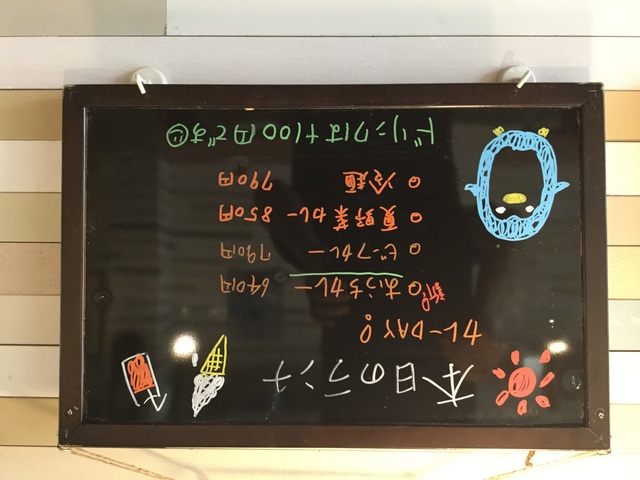 本日のランチ
カレーDAY!
新! おうちカレー 640円
ビーフカレー 790円
夏野菜カレー 850円
冷麺 790円
ドリンクは+100円です